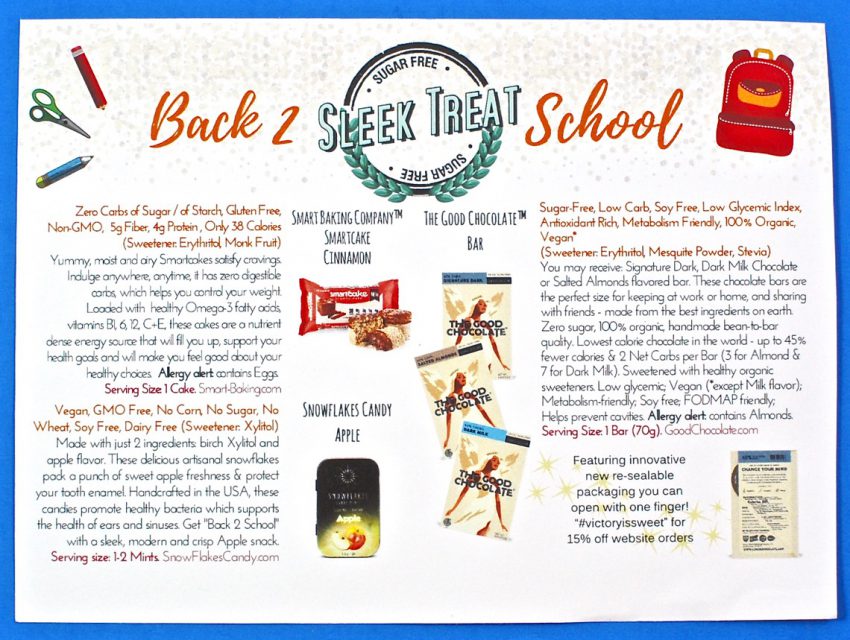 Back 2
SUGAR FREE
SLEEK TREAT
SUGAR FREE
School
Zero Carbs of Sugar / of Starch, Gluten Free,
Non-GMO, 5g Fiber, 4g Protein, Only 38 Calories
(Sweetener: Erythritol, Monk Fruit)
Yummy, moist and airy Smartcakes satisfy cravings.
Indulge anywhere, anytime, it has zero digestible
carbs, which helps you control your weight.
Loaded with healthy Omega-3 fatty acids,
vitamins B1, 6, 12, C+E, these cakes are a nutrient
dense energy source that will fill you up, support your
health goals and will make you feel good about your
healthy choices. Allergy alert: contains Eggs.
Serving Size: 1 Cake. Smart-Baking.com
Vegan, GMO Free, No Corn, No Sugar, No
Wheat, Soy Free, Dairy Free (Sweetener: Xylitol)
Made with just 2 ingredients: birch Xylitol and
apple flavor. These delicious artisanal snowflakes
pack a punch of sweet apple freshness & protect
your tooth enamel. Handcrafted in the USA, these
candies promote healthy bacteria which supports
the health of ears and sinuses. Get "Back 2 School"
with a sleek, modern and crisp Apple snack.
Serving size: 1-2 Mints. SnowFlakesCandy.com
SMART BAKING COMPANY™
SMARTCAKE
CINNAMON
smartcake
SNOWFLAKES CANDY
APPLE
SNOWFLAKES
Apple
THE GOOD CHOCOLATE™
BAR
SIGNATURE DARK
THE GOOD
CHOCOLATE
SALTED ALMONDS
THE GOOD
CHOCOLATE
DARK MILK
THE GOOD
CHOCOLATE
Sugar-Free, Low Carb, Soy Free, Low Glycemic Index,
Antioxidant Rich, Metabolism Friendly, 100% Organic,
Vegan*
(Sweetener: Erythritol, Mesquite Powder, Stevia)
You may receive: Signature Dark, Dark Milk Chocolate
or Salted Almonds flavored bar. These chocolate bars are
the perfect size for keeping at work or home, and sharing
with friends - made from the best ingredients on earth.
Zero sugar, 100% organic, handmade bean-to-bar
quality. Lowest calorie chocolate in the world - up to 45%
fewer calories & 2 Net Carbs per Bar (3 for Almond &
7 for Dark Milk). Sweetened with healthy organic
sweeteners. Low glycemic; Vegan (*except Milk flavor);
Metabolism-friendly; Soy free; FODMAP friendly;
Helps prevent cavities. Allergy alert: contains Almonds.
Serving Size: 1 Bar (70g). GoodChocolate.com
Featuring innovative
new re-sealable
packaging you can
open with one finger!
"#victoryissweet" for
15% off website orders
CHANGE YOUR MIND